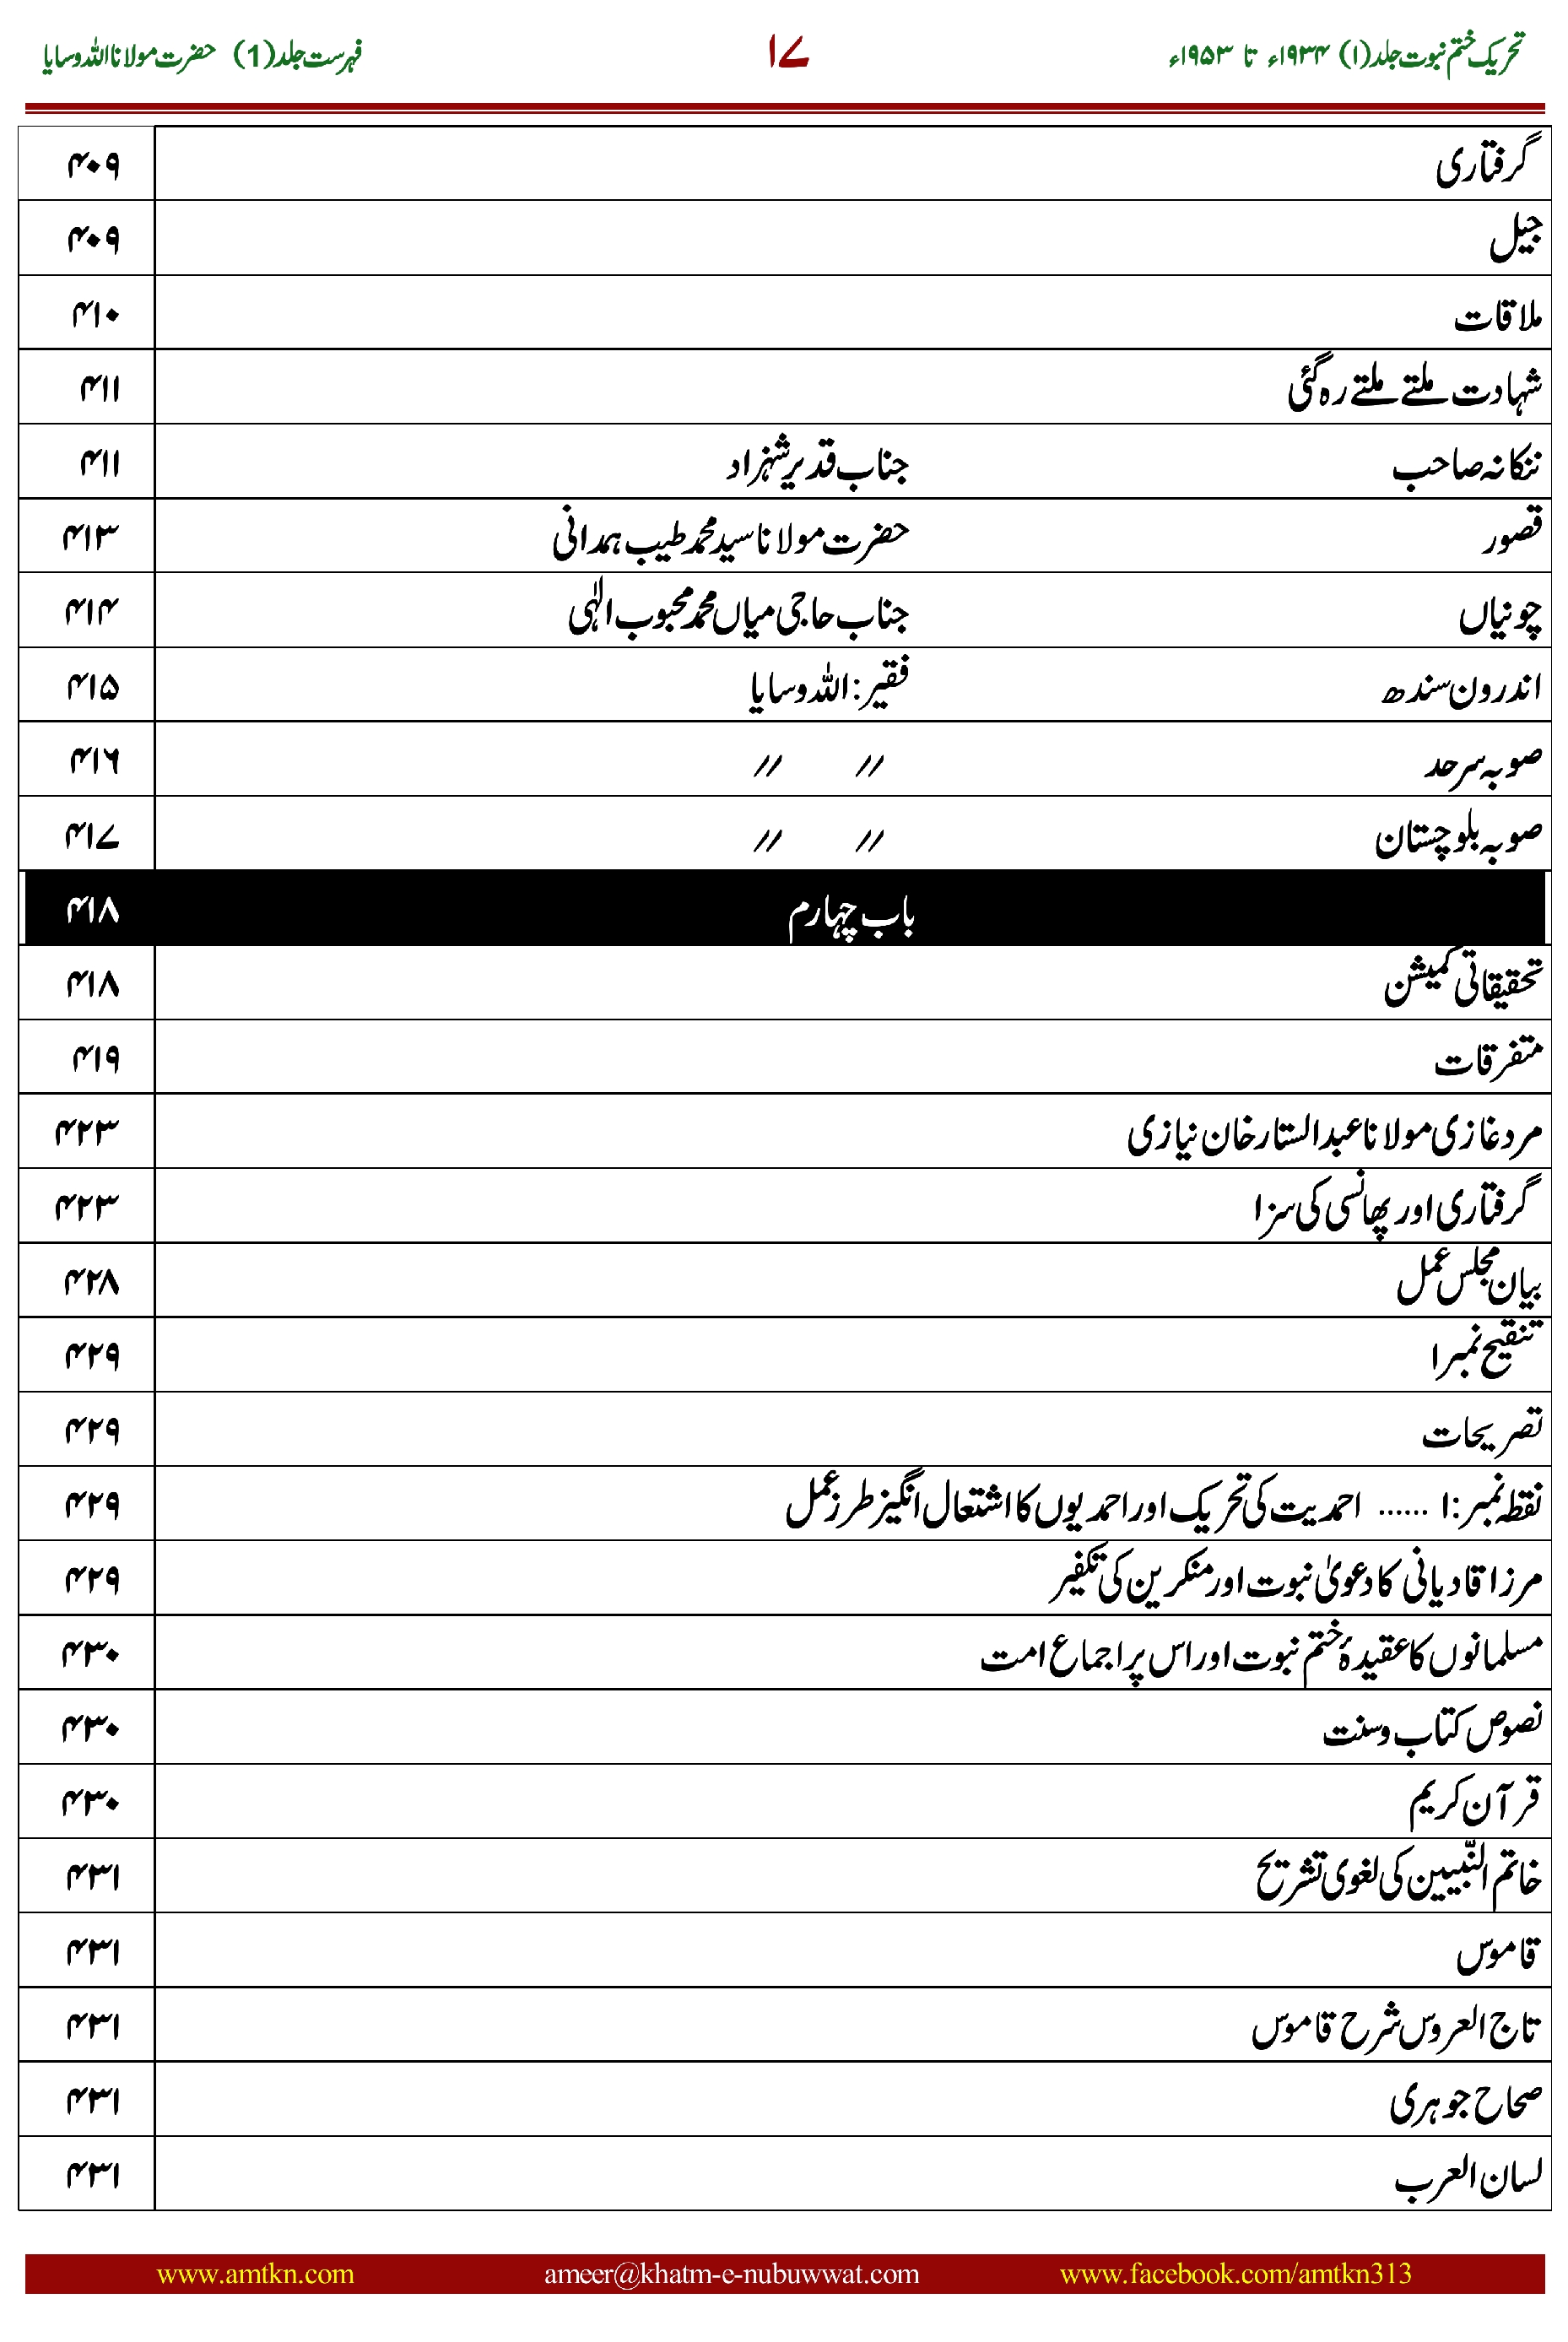 تحریک ختم نبوت جلد(۱) ۱۹۳۴ء تا ۱۹۵۳ء ۱۷ فہرست جلد(1) حضرت مولانا اللہ وسایا
گرفتاری ۴۰۹
جیل ۴۰۹
ملاقات ۴۱۰
شہادت ملتے ملتے رہ گئی ۴۱۱
ننکانہ صاحب جناب قدیر شہزاد ۴۱۱
قصور حضرت مولانا سید محمد طیب ہمدانی ۴۱۳
چونیاں جناب حاجی میاں محمد محبوب الٰہی ۴۱۴
اندرون سندھ فقیر: اللہ وسایا ۴۱۵
صوبہ سرحد // // ۴۱۶
صوبہ بلوچستان // // ۴۱۷
باب چہارم ۴۱۸
تحقیقاتی کمیشن ۴۱۸
متفرقات ۴۱۹
مرد غازی مولانا عبدالستار خان نیازی ۴۲۳
گرفتاری اور پھانسی کی سزا ۴۲۳
بیان مجلس عمل ۴۲۸
تنقیح نمبر ۱ ۴۲۹
تصریحات ۴۲۹
نقطہ نمبر:۱ ...... احمدیت کی تحریک اور احمدیوں کا اشتعال انگیز طرز عمل ۴۲۹
مرزا قادیانی کا دعویٰ نبوت اور منکرین کی تکفیر ۴۲۹
مسلمانوں کا عقیدۂ ختم نبوت اور اس پر اجماع امت ۴۳۰
نصوص کتاب وسنت ۴۳۰
قرآن کریم ۴۳۰
خاتم النّبیین کی لغوی تشریح ۴۳۱
قاموس ۴۳۱
تاج العروس شرح قاموس ۴۳۱
صحاح جوہری ۴۳۱
لسان العرب ۴۳۱
www.amtkn.com ameer@khatm-e-nubuwwat.com www.facebook.com/amtkn313